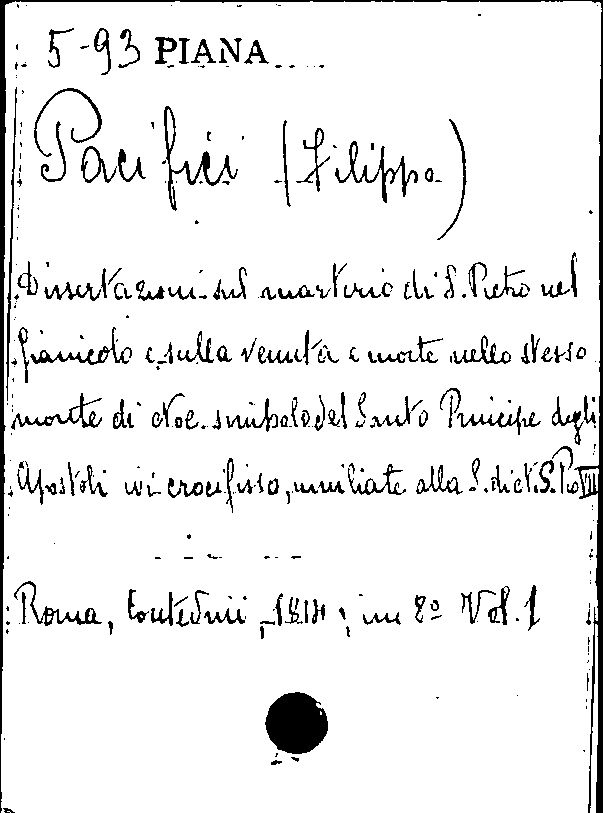 5-93 PIANA
Pacifici (Filippo)
Dissertazioni sul martirio di S. Pietro nel
Gianicolo e sulla venuta e morte nello stesso
monte di Noè simbolo del Santo Principe degli
Apostoli ivi crocifisso, umiliate alla S. di N. S. Pio VII
Roma, Contedini, 1814; in 8º Vol. 1